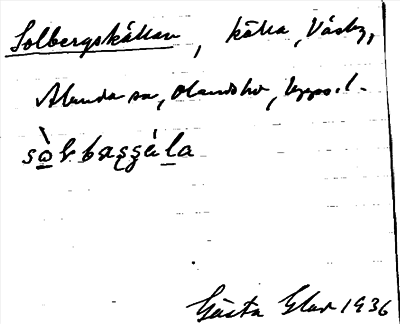 Solbergskällan, källa, Väsby,
Alunda sn, Olands hd, Upps. l.
sòlbasşä́la
Gösta Glad 1936